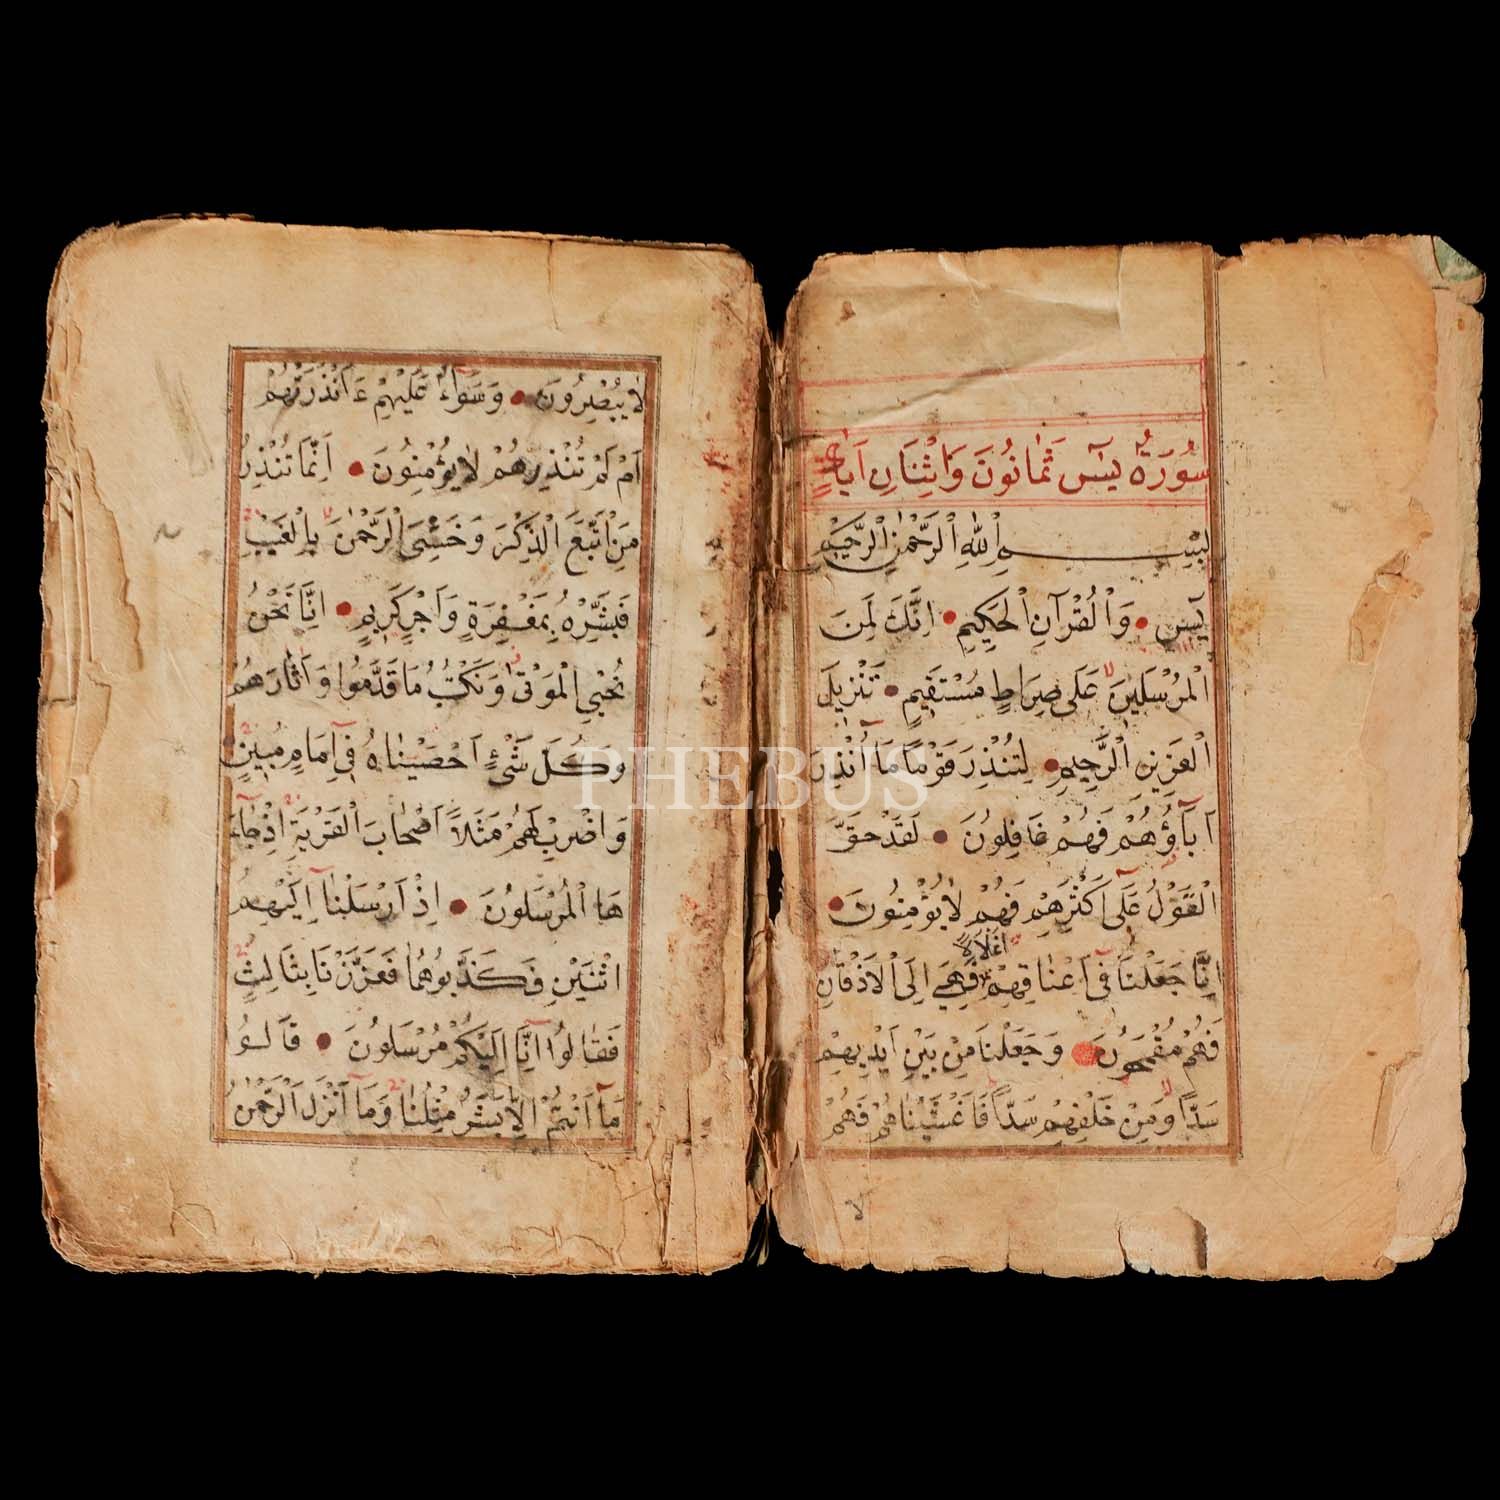 سُورَةُ يٰسٓ ثَمَانُونَ وَاثْنَانِ اٰيَاتٍ
بِسْمِ اللّٰهِ الرَّحْمٰنِ الرَّحِيْمِ
يٰسٓ وَالْقُرْآنِ الْحَكِيْمِ اِنَّكَ لَمِنَ
الْمُرْسَلِيْنَ عَلٰى صِرَاطٍ مُسْتَقِيْمٍ تَنْزِيْلَ
الْعَزِيْزِ الرَّحِيْمِ لِتُنْذِرَ قَوْمًا مَآ اُنْذِرَ
اٰبَآؤُهُمْ فَهُمْ غَافِلُوْنَ لَقَدْ حَقَّ
الْقَوْلُ عَلٰٓى اَكْثَرِهِمْ فَهُمْ لَا يُؤْمِنُوْنَ
اِنَّا جَعَلْنَا فِٓى اَعْنَاقِهِمْ اَغْلَالًا فَهِىَ اِلَى الْاَذْقَانِ
فَهُمْ مُقْمَحُوْنَ وَجَعَلْنَا مِنْ بَيْنِ اَيْدِيْهِمْ
سَدًّا وَمِنْ خَلْفِهِمْ سَدًّا فَاَغْشَيْنَاهُمْ فَهُمْ
لَا يُبْصِرُوْنَ وَسَوَآءٌ عَلَيْهِمْ ءَاَنْذَرْتَهُمْ
اَمْ لَمْ تُنْذِرْهُمْ لَا يُؤْمِنُوْنَ اِنَّمَا تُنْذِرُ
مَنِ اتَّبَعَ الذِّكْرَ وَخَشِىَ الرَّحْمٰنَ بِالْغَيْبِ
فَبَشِّرْهُ بِمَغْفِرَةٍ وَاَجْرٍ كَرِيْمٍ اِنَّا نَحْنُ
نُحْيِى الْمَوْتٰى وَنَكْتُبُ مَا قَدَّمُوْا وَاٰثَارَهُمْ
وَكُلَّ شَىْءٍ اَحْصَيْنَاهُ فِٓى اِمَامٍ مُبِيْنٍ
PHEBUS
وَاضْرِبْ لَهُمْ مَثَلًا اَصْحَابَ الْقَرْيَةِ اِذْ جَآءَ
هَا الْمُرْسَلُوْنَ اِذْ اَرْسَلْنَآ اِلَيْهِمُ
اثْنَيْنِ فَكَذَّبُوْهُمَا فَعَزَّزْنَا بِثَالِثٍ
فَقَالُوْٓا اِنَّآ اِلَيْكُمْ مُرْسَلُوْنَ قَالُوْا
مَآ اَنْتُمْ اِلَّا بَشَرٌ مِثْلُنَا وَمَآ اَنْزَلَ الرَّحْمٰنُ